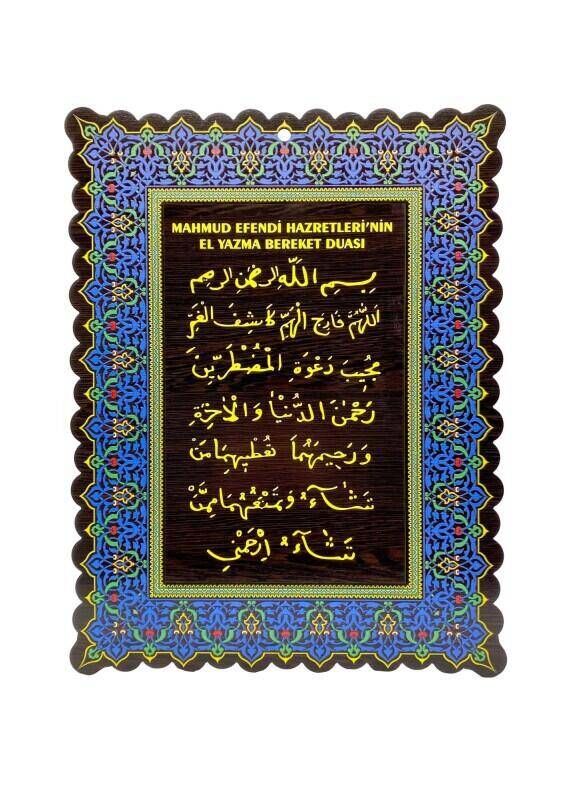 MAHMUD EFENDİ HAZRETLERİ'NİN
EL YAZMA BEREKET DUASI
بِسْمِ اللَّهِ الرحمٰنِ الرحيم
اَللّٰهُمَّ فَارِجَ الْهَمِّ كَاشِفَ الْغَمِّ
مُجِيبَ دَعْوَةِ الْمُضْطَرِّينَ
رَحْمٰنَ الدُّنْيَا وَالْاٰخِرَةِ
وَرَحِيمَهُمَا تُعْطِيهِمَا مَنْ
تَشَاءُ وَتَمْنَعُهُمَا مِمَّنْ
تَشَاءُ اِرْحَمْنِي